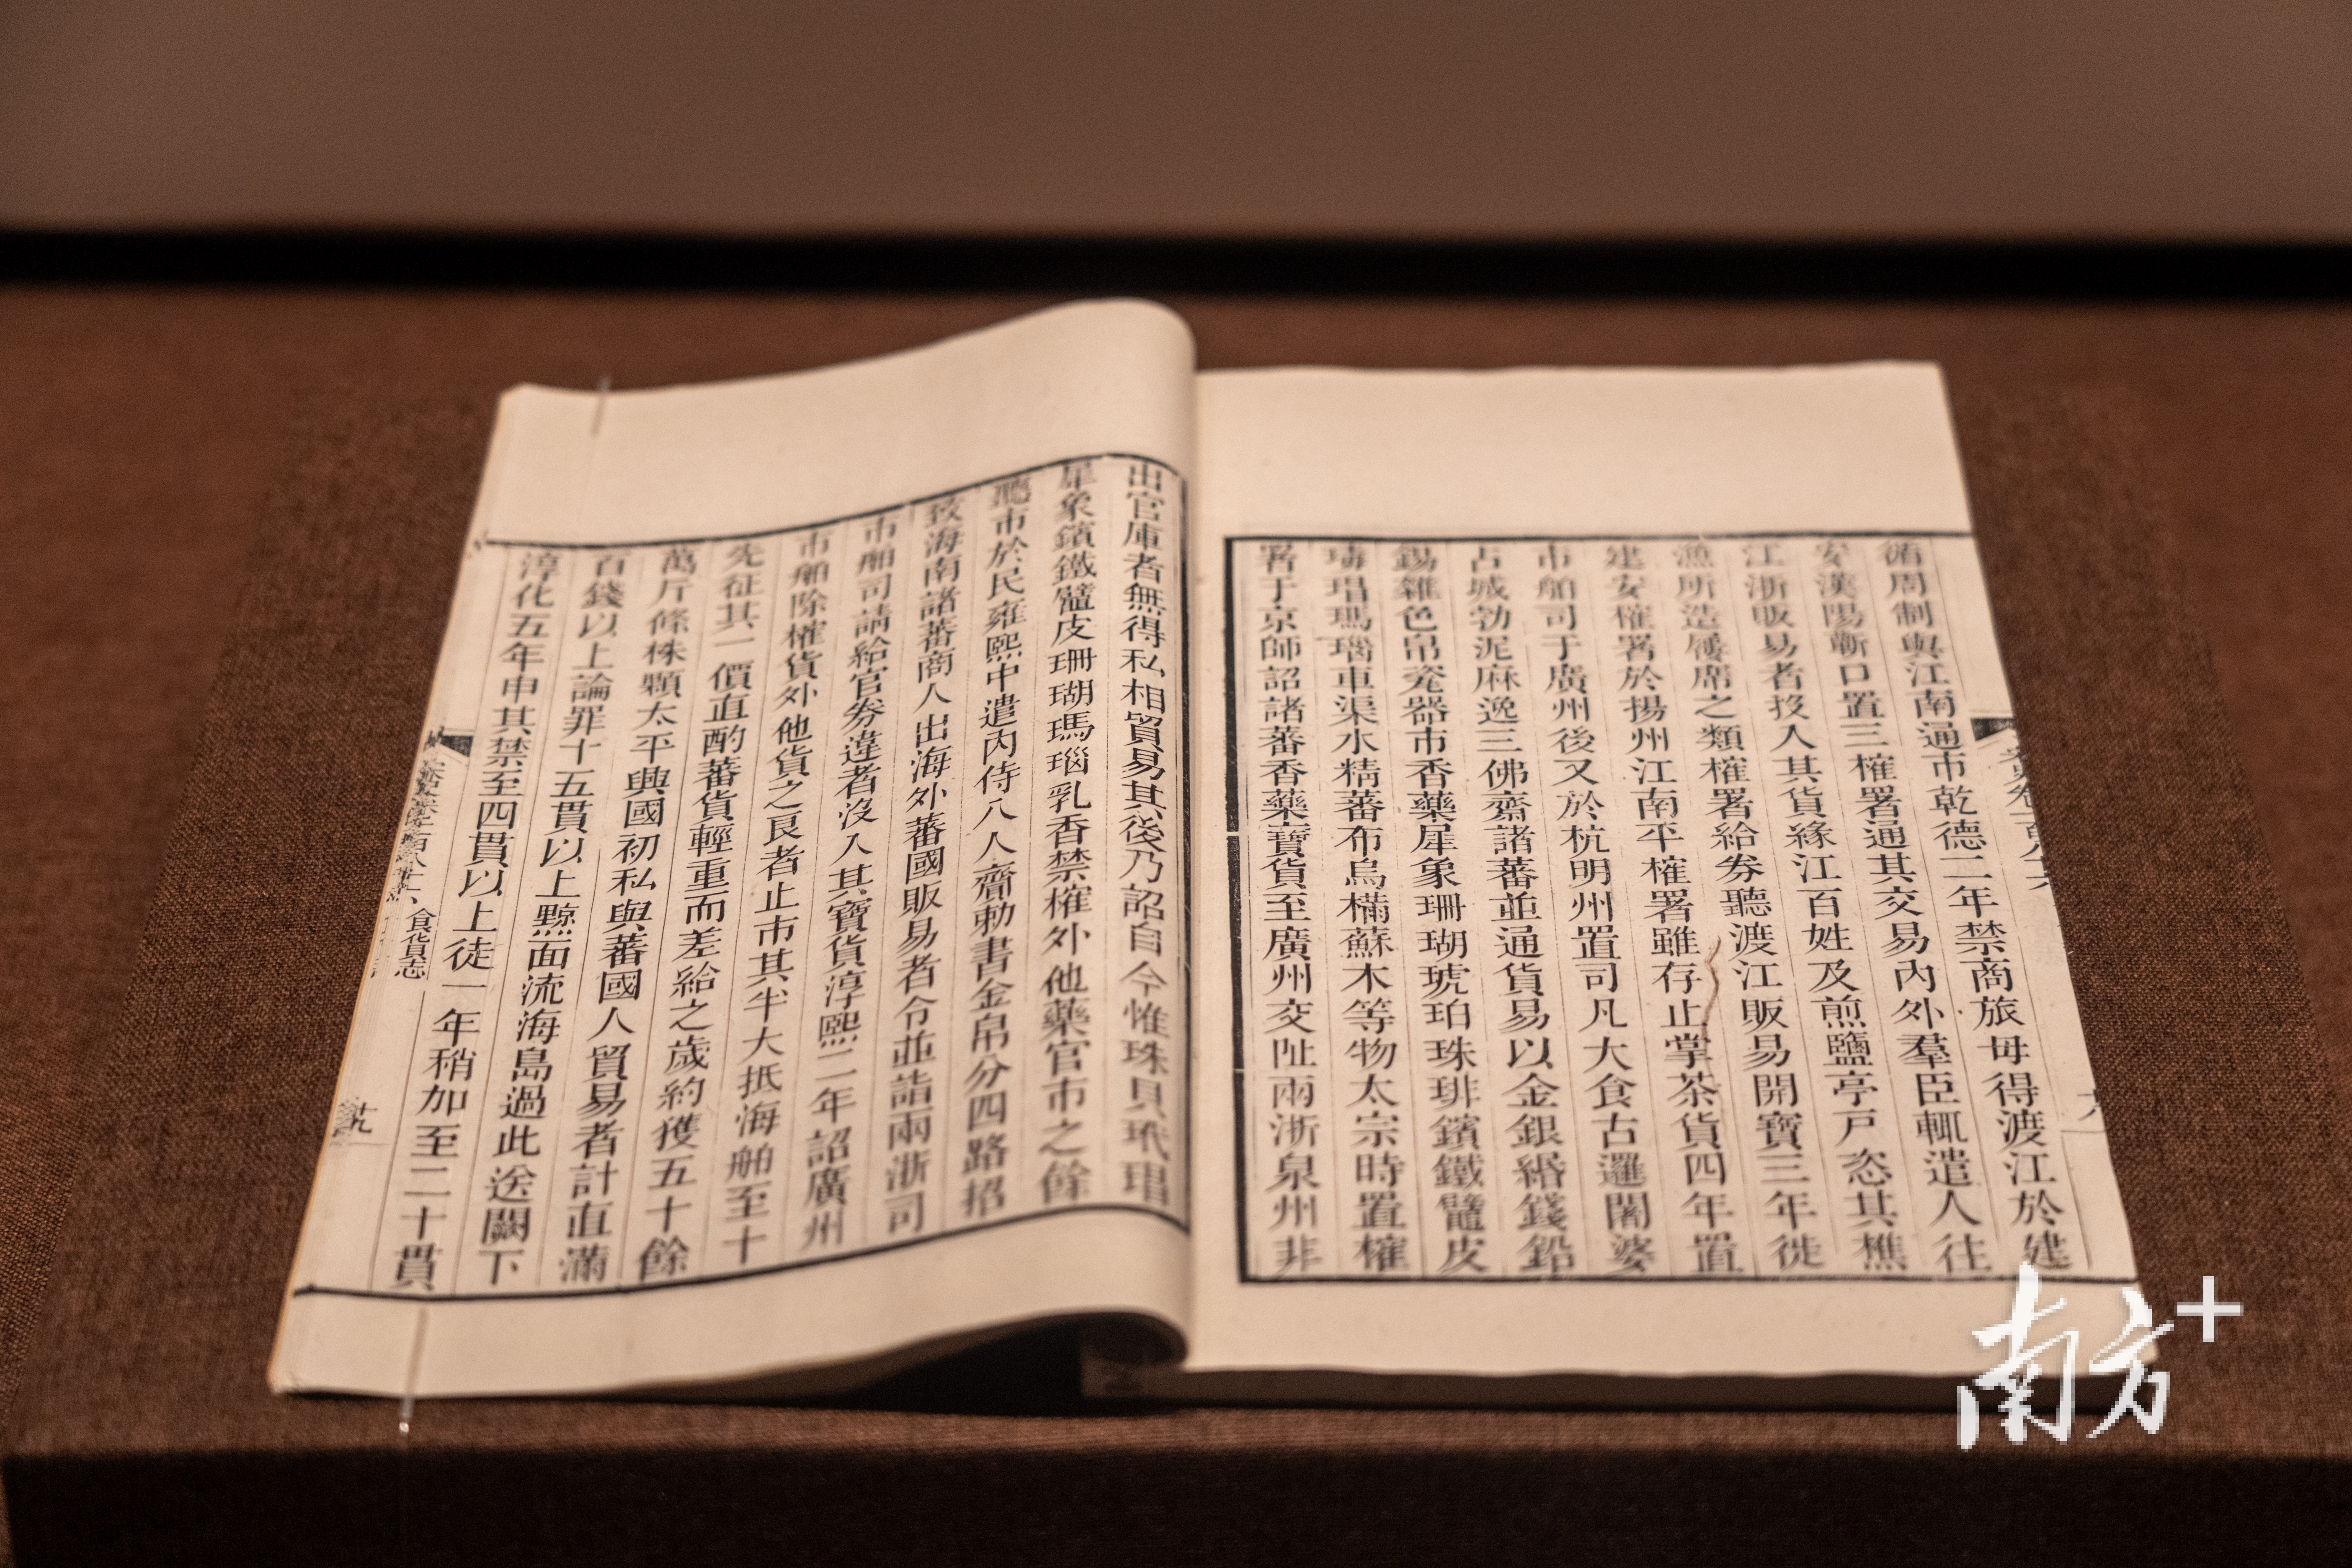 循周制與江南通市乾德二年禁商旅毋得渡江於建
安漢陽蘄口置三榷署通其交易內外羣臣輒遣人往
江浙販易者投入其貨緣江百姓及煎鹽亭戶恣其樵
漁所造屨席之類榷署給券聽渡江販易開寶三年徙
建安榷署於揚州江南平榷署雖存止掌茶貨四年置
市舶司于廣州後又於杭明州置司凡大食古邏闍婆
占城勃泥麻逸三佛齋諸蕃並通貨易以金銀緡錢鉛
錫雜色帛瓷器市香藥犀象珊瑚琥珀珠琲鑌鐵鼊皮
瑇瑁瑪瑙車渠水精蕃布烏樠蘇木等物太宗時置榷
署于京師詔諸蕃香藥寶貨至廣州交阯兩浙泉州非
出官庫者無得私相貿易其後乃詔自今惟珠貝玳瑁
犀象鑌鐵鼊皮珊瑚瑪瑙乳香禁榷外他藥官市之餘
聽市於民雍熙中遣內侍八人齎勅書金帛分四路招
致海南諸蕃商人出海外蕃國販易者令並詣兩浙司
市舶司請給官券違者沒入其寶貨淳熙二年詔廣州
市舶除榷貨外他貨之良者止市其半大抵海舶至十
先征其一價直酌蕃貨輕重而差給之歲約獲五十餘
萬斤條株顆太平興國初私與蕃國人貿易者計直滿
百錢以上論罪十五貫以上黥面流海島過此送闕下
淳化五年申其禁至四貫以上徒一年稍加至二十貫
食貨志
南方+